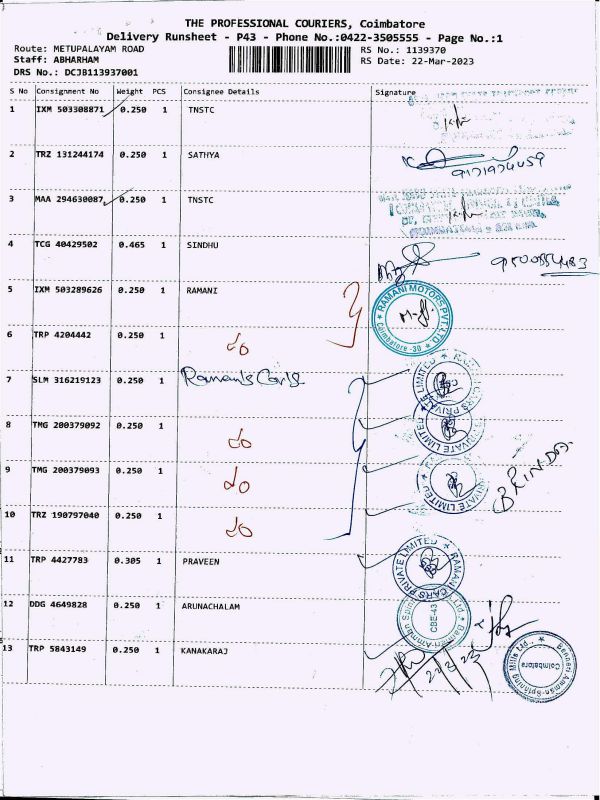 THE PROFESSIONAL COURIERS, Coimbatore
Delivery Runsheet - P43 - Phone No.:0422-3505555 - Page No.:1
Route: METUPALAYAM ROAD
Staff: ABHARHAM
DRS No.: DCJB113937001
RS No.: 1139370
RS Date: 22-Mar-2023
S No Consignment No Weight PCS Consignee Details Signature
1 IXM 503308871 0.250 1 TNSTC
2 TRZ 131244174 0.250 1 SATHYA
3 MAA 294630087 0.250 1 TNSTC
4 TCG 40429502 0.465 1 SINDHU
5 IXM 503289626 0.250 1 RAMANI
RAMANI MOTORS PVT. LTD
Coimbatore -30
6 TRP 4204442 0.250 1 do
7 SLM 316219123 0.250 1 Ramani Cars
8 TMG 200379092 0.250 1 do
9 TMG 200379093 0.250 1 do
BRINDA
10 TRZ 190797040 0.250 1 do
11 TRP 4427783 0.305 1 PRAVEEN
RAMANI CARS PRIVATE LIMITED
12 DDG 4649828 0.250 1 ARUNACHALAM
CBE-43
13 TRP 5843149 0.250 1 KANAKARAJ
Bannari Amman Spinning Mills Ltd.
Coimbatore